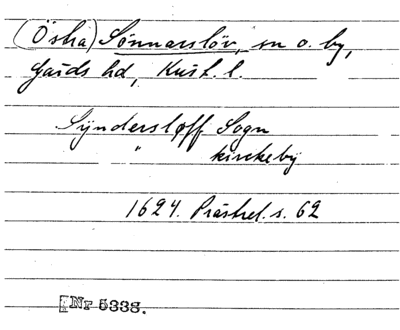 (Östra) Sönnarslöv, sn o. by,
Gärds hd, Krist. l.
Synderslöff Sogn
" kirckeby
1624. Prästrel. s. 62
Nr 5338.